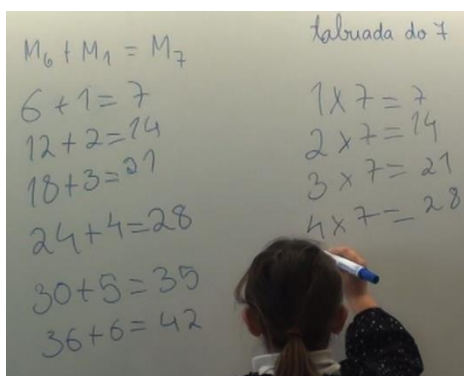 M₆ + M₁ = M₇
6 + 1 = 7
12 + 2 = 14
18 + 3 = 21
24 + 4 = 28
30 + 5 = 35
36 + 6 = 42
tabuada do 7
1 x 7 = 7
2 x 7 = 14
3 x 7 = 21
4 x 7 = 28